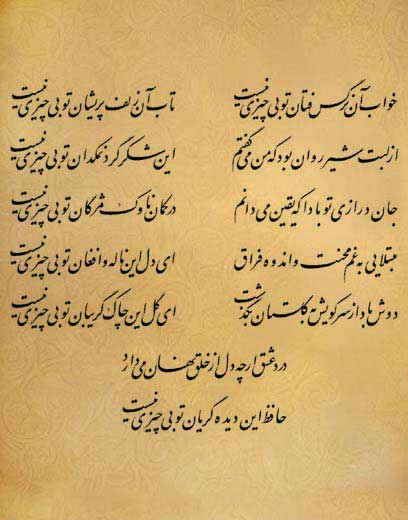 خواب آن نرگس فتان تو بی چیزی نیست تاب آن زلف پریشان تو بی چیزی نیست
از لبت شیر روان بود که من می گفتم این شکر گرد نمکدان تو بی چیزی نیست
جان درازی تو بادا که یقین می دانم در کمان ناوک مژگان تو بی چیزی نیست
مبتلایی به غم محنت و اندوه فراق ای دل این ناله و افغان تو بی چیزی نیست
دوش باد از سر کویش به گلستان بگذشت ای گل این چاک گریبان تو بی چیزی نیست
درد عشق ار چه دل از خلق نهان می دارد
حافظ این دیده گریان تو بی چیزی نیست